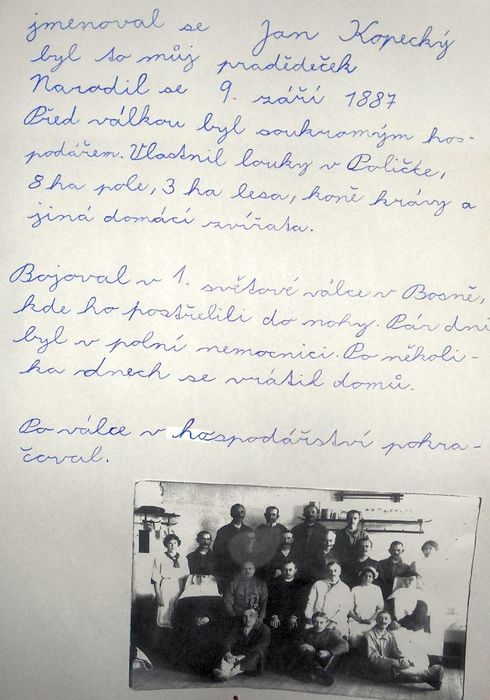 jmenoval se Jan Kopecký
byl to můj pradědeček
Narodil se 9. září 1887
Před válkou byl soukromým hos-
podářem. Vlastnil louky v Poličce,
8 ha pole, 3 ha lesa, koně krávy a
jiná domácí zvířata.
Bojoval v 1. světové válce v Bosně,
kde ho postřelili do nohy. Pár dní
byl v polní nemocnici. Po několi-
ka dnech se vrátil domů.
Po válce v hospodářství pokra-
čoval.